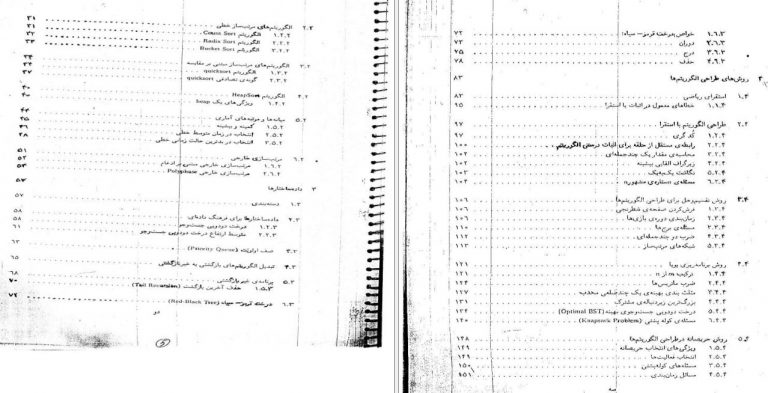 ۲.۲ الگوریتم‌های مرتب‌ساز خطی ۳۱
۱.۲.۲ الگوریتم Count Sort ۳۱
۲.۲.۲ الگوریتم Radix Sort ۳۲
۳.۲.۲ الگوریتم Bucket Sort ۳۳
۳.۲ الگوریتم‌های مرتب‌ساز مبتنی بر مقایسه ۳۴
۱.۳.۲ الگوریتم quicksort ۳۴
۲.۳.۲ گونه‌ی تصادفی quicksort ۳۷
۴.۲ الگوریتم HeapSort ۴۰
۱.۴.۲ ویژگی‌های یک heap ۴۰
۵.۲ میانه‌ها و مرتبه‌های آماری ۴۴
۱.۵.۲ کمینه و بیشینه ۴۵
۲.۵.۲ انتخاب در زمان متوسط خطی
۳.۵.۲ انتخاب در بدترین حالت زمانی خطی ۴۸
۶.۲ مرتب‌سازی خارجی ۵۱
۱.۶.۲ مرتب‌سازی خارجی مبتنی بر ادغام ۵۲
۲.۶.۲ مرتب‌سازی خارجی Polyphase ۵۳
۳ داده‌ساختارها ۵۷
۱.۳ دسته‌بندی ۵۷
۲.۳ داده‌ساختارها برای فرهنگ داده‌ای ۵۸
۱.۲.۳ درخت دودویی جست‌وجو ۵۸
۲.۲.۳ متوسط ارتفاع درخت دودویی جست‌وجو ۶۱
۳.۳ صف اولویت (Priority Queue) ۶۳
۴.۳ تبدیل الگوریتم‌های بازگشتی به غیربازگشتی ۶۵
۵.۳ برنامه‌ی غیربازگشتی ۶۸
۱.۵.۳ حذف آخرین بازگشت (Tail Recursion) ۷۰
۶.۳ درخت قرمز-سیاه (Red-Black Tree) ۷۲
دو
۱.۶.۳ خواص درخت قرمز-سیاه ۷۲
۲.۶.۳ دوران ۷۳
۳.۶.۳ درج ۷۵
۴.۶.۳ حذف ۷۸
۴ روش‌های طراحی الگوریتم‌ها ۸۳
۱.۴ استقرای ریاضی ۸۳
۱.۱.۴ خطاهای معمول در اثبات با استقرا ۹۵
۲.۴ طراحی الگوریتم با استقرا ۹۷
۱.۲.۴ کُد گری ۹۷
۲.۲.۴ رابطه‌ی مستقل از حلقه برای اثبات درستی الگوریتم ۱۰۰
۳.۲.۴ محاسبه‌ی مقدار یک چندجمله‌ای ۱۰۲
۴.۲.۴ زیرگراف القایی بیشینه ۱۰۲
۵.۲.۴ نگاشت یک‌به‌یک ۱۰۳
۶.۲.۴ مسئله‌ی «ستاره‌ی مشهور» ۱۰۴
۳.۴ روش تقسیم‌وحل برای طراحی الگوریتم‌ها ۱۰۶
۱.۳.۴ فرش‌کردن صفحه‌ی شطرنجی ۱۰۶
۲.۳.۴ زمان‌بندی دوره‌ی بازی‌ها
۳.۳.۴ مسئله‌ی برج‌ها ۱۱۰
۴.۳.۴ ضرب دو چندجمله‌ای ۱۱۲
۵.۳.۴ شبکه‌های مرتب‌ساز ۱۱۳
۴.۴ روش برنامه‌ریزی پویا ۱۲۱
۱.۴.۴ ترکیب m از n ۱۲۱
۲.۴.۴ ضرب ماتریس‌ها
۳.۴.۴ مثلث بندی بهینه‌ی یک چندضلعی محدب ۱۲۷
۴.۴.۴ بزرگ‌ترین زیردنباله‌ی مشترک ۱۳۱
۵.۴.۴ درخت دودویی جست‌وجوی بهینه (Optimal BST) ۱۳۴
۶.۴.۴ مسئله‌ی کوله پشتی (Knapsack Problem) ۱۴۰
۵.۴ روش حریصانه در طراحی الگوریتم‌ها ۱۴۸
۱.۵.۴ ویژگی‌های انتخاب حریصانه ۱۴۹
۲.۵.۴ انتخاب فعالیت‌ها ۱۴۹
۳.۵.۴ مسئله‌های کوله‌پشتی ۱۵۰
۴.۵.۴ مسائل زمان‌بندی ۱۵۱
سه